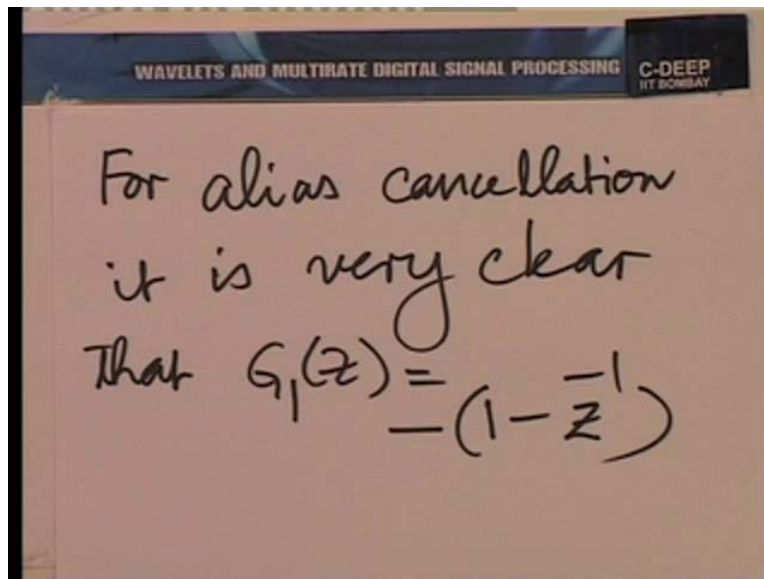 WAVELETS AND MULTIRATE DIGITAL SIGNAL PROCESSING
C-DEEP
IIT BOMBAY
For alias cancellation
it is very clear
that G₁(z) =
-(1 - z⁻¹)